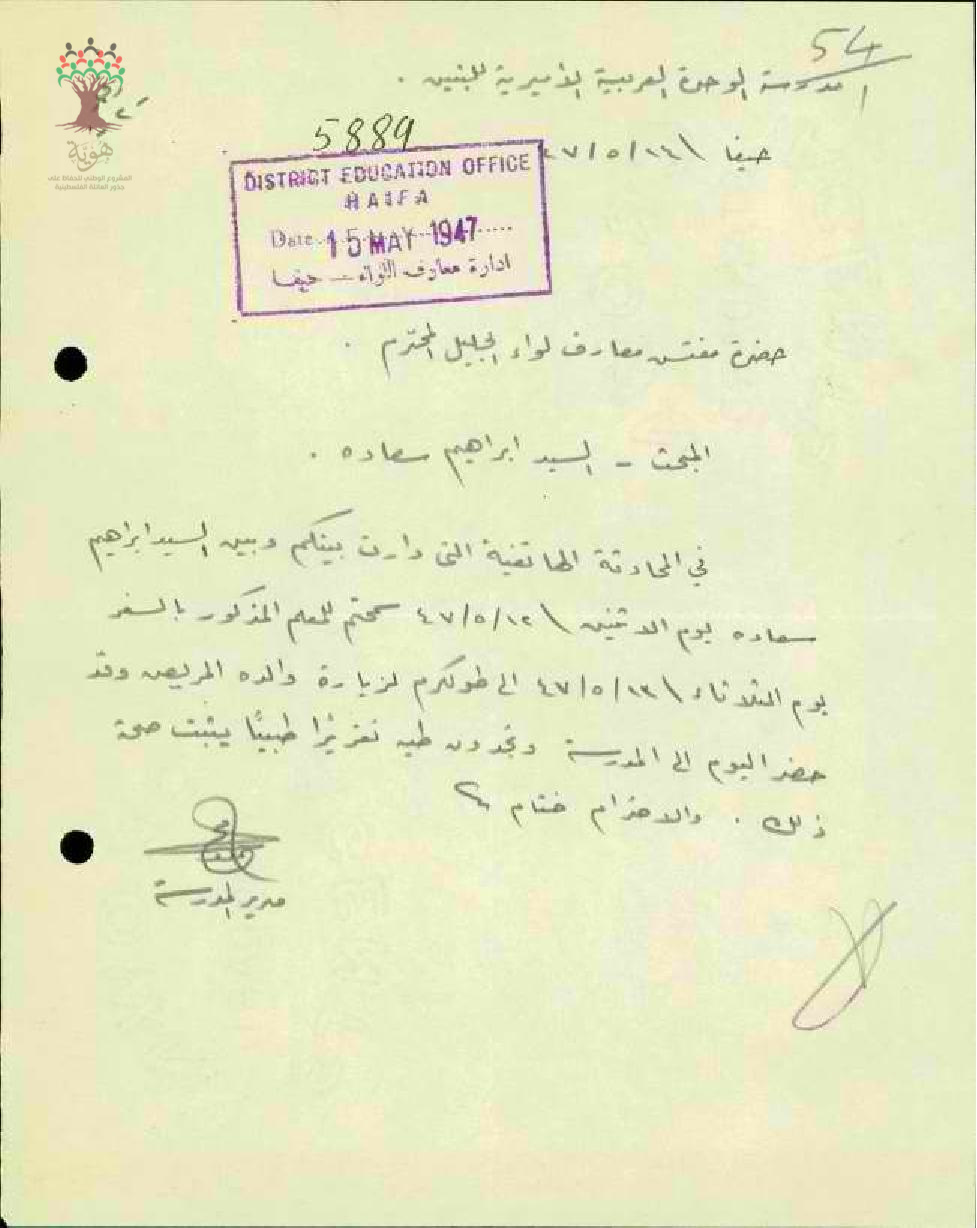 54
مدرسة الوحدة العربية الأميرية للبنين .
هوية
المشروع الوطني للحفاظ على
جذور العائلة الفلسطينية
حيفا ١٤/٥/٤٧
5889
DISTRICT EDUCATION OFFICE
HAIFA
Date 15 MAY 1947
ادارة معارف اللواء – حيفا
حضرة مفتش معارف لواء الجليل المحترم .
المبحث – السيد ابراهيم سعاده .
في المحادثة الهاتفية التي دارت بينكم وبين السيد ابراهيم
سعاده يوم الاثنين ١٢/٥/٤٧ سمحتم للمعلم المذكور بالسفر
يوم الثلاثاء ١٣/٥/٤٧ الى طولكرم لزيارة والده المريض وقد
حضر اليوم الى المدرسة وتجدون طيه تقريرًا طبيًا يثبت صحة
ذلك . والاحترام ختام
مدير المدرسة